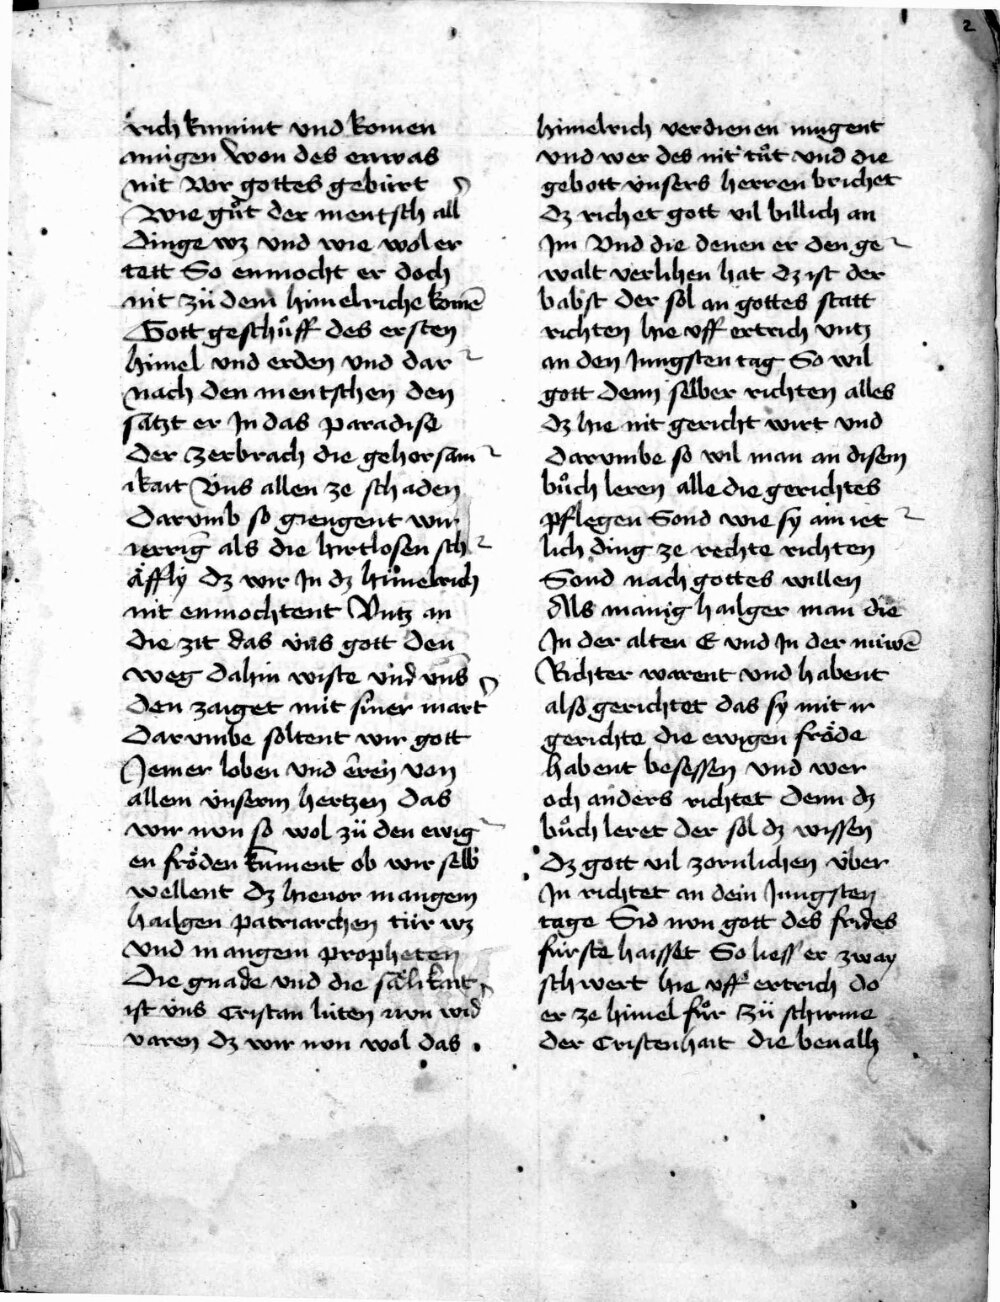 2
rich kumint und komen
mugen won des enwas
nit Vor gottes gebúrt
Wie gůt der mentsch all
dinge wz vnd wie wol er
tett So enmocht er doch
nit zü dem himelriche komē
Gott geschůff des ersten
himel vnd erden vnd dar
nach den mentschen den
satzt er Jn das paradise
der zerbrach die gehorsam
ikait Vns allen ze schaden
Darumb so giengent wir
ierrig als die hirtlosen sch
äffly dz wir Jn dz himelrich
nit enmochtent Vntz an
die zit das vns gott den
weg dahin wiste vnd vns
den zaiget mit siner mart
Darumbe soltent wir gott
Jemer loben vnd eren von
allem vnserm hertzen das
wir nun so wol zü den ewig
en fröden kument ob wir selb
wellent dz hieuor mangem
hailgen patriarchen túr wz
vnd mangem propheten
Die gnade vnd die sälikait
ist vns Cristan lúten nun wid
varen dz wir nun wol das
himelrich verdienen mugent
vnd wer des nit tůt vnd die
gebott vnsers herren brichet
dz richet gott vil billich an
Jm Vnd die denen er den ge
walt verlihen hat dz ist der
babst der sol an gottes statt
richten hie vff ertrich vntz
an den Jungsten tag So wil
gott denn selber richten alles
dz hie nit gericht wirt vnd
darumbe so wil man an disem
bůch leren alle die gerichtes
pflegen Sond wie sy ain iet
lich ding ze rechte richten
Sond nach gottes willen
Als mänig hailger man die
Jn der alten E vnd Jn der núwē
Richter warent vnd habent
also gerichtet das sy mit ir
gerichte die ewigen fröde
habent besessen vnd wer
och anders richtet denn dz
bůch leret der sol dz wissen
dz gott vil zornlichen über
Jn richtet an dem Jungsten
tage Sid nun gott des frides
fúrste haisset So liess er zway
schwert hie vff ertrich do
er ze himel fůr Zü schirme
der Cristenhait die beualh